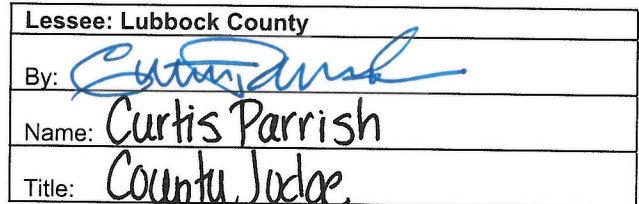 Lessee: Lubbock County
By: Curtis Parrish
Name: Curtis Parrish
Title: County Judge